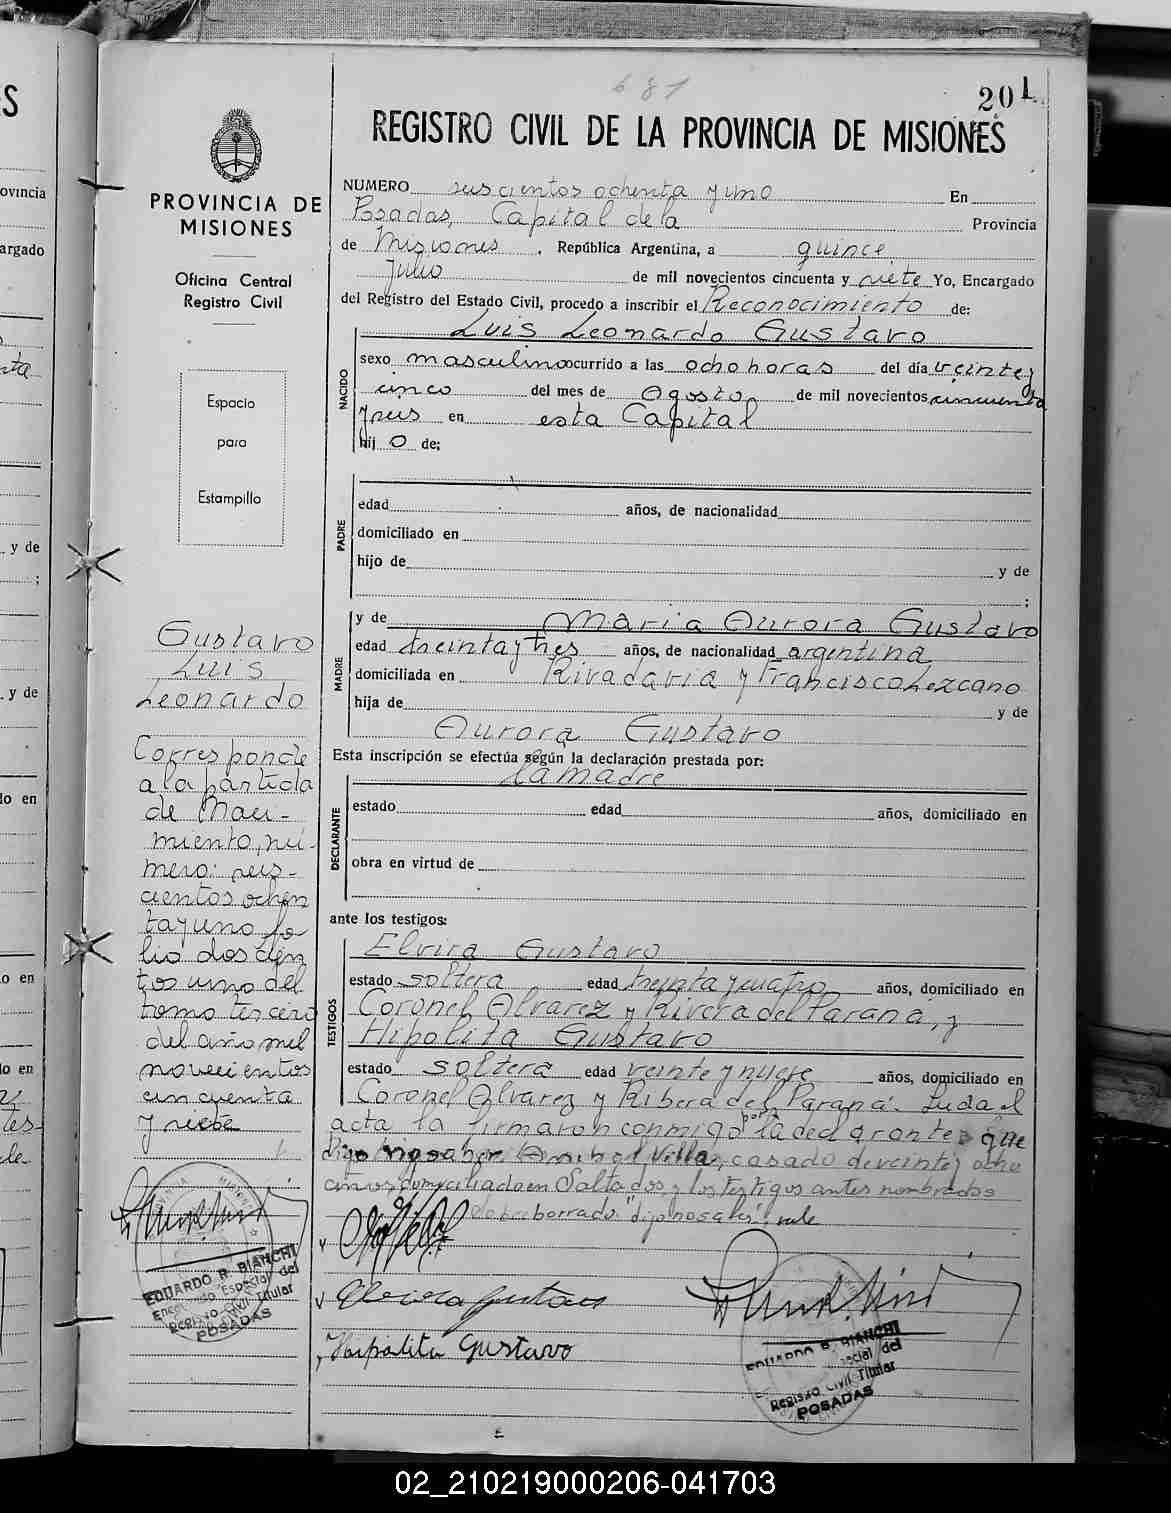 681
201
REGISTRO CIVIL DE LA PROVINCIA DE MISIONES
PROVINCIA DE
MISIONES
Oficina Central
Registro Civil
Espacio
para
Estampilla
NUMERO seiscientos ochenta y uno En
Posadas, Capital de la Provincia
de Misiones, República Argentina, a quince
Julio de mil novecientos cincuenta y siete Yo, Encargado
del Registro del Estado Civil, procedo a inscribir el Reconocimiento de:
Luis Leonardo Gustavo
NACIDO
sexo masculino ocurrido a las ocho horas del día veinte y
cinco del mes de Agosto de mil novecientos cincuenta
y seis en esta Capital
hijo de;
PADRE
edad años, de nacionalidad
domiciliado en
hijo de y de
;
MADRE
y de Maria Aurora Gustavo
edad treinta y tres años, de nacionalidad argentina
domiciliada en Rivadavia y Francisco Lezcano
hija de y de
Aurora Gustavo
Esta inscripción se efectúa según la declaración prestada por:
la madre
DECLARANTE
estado edad años, domiciliado en
obra en virtud de
ante los testigos:
TESTIGOS
Elvira Gustavo
estado soltera edad treinta y cuatro años, domiciliado en
Coronel Alvarez y Rivera del Paraná, y
Hipolita Gustavo
estado soltera edad veinte y nueve años, domiciliado en
Coronel Alvarez y Ribera del Paraná. Leida el
acta la firmaron conmigo por la declarante, que
digo no saber Anibal Villa, casado de veinte y ocho
años, domiciliado en Salta dos, y los testigos antes nombrados
Sobreborrado: "dijo no saber": vale
Elvira Gustavo
Haipolita Gustavo
EDUARDO R. BIANCHI
Encargado Especial del
Registro Civil Titular
POSADAS
Gustavo
Luis
Leonardo
Corresponde
a la partida
de Naci-
miento, nú-
mero: seis-
cientos ochen
ta y uno fo-
lio doscien
tos uno del
tomo tercero
del año mil
novecientos
cincuenta
y siete
EDUARDO R. BIANCHI
Encargado Especial del
Registro Civil Titular
POSADAS
ovincia
argado
y de
;
y de
lo en
o en
lo en
02_210219000206-041703